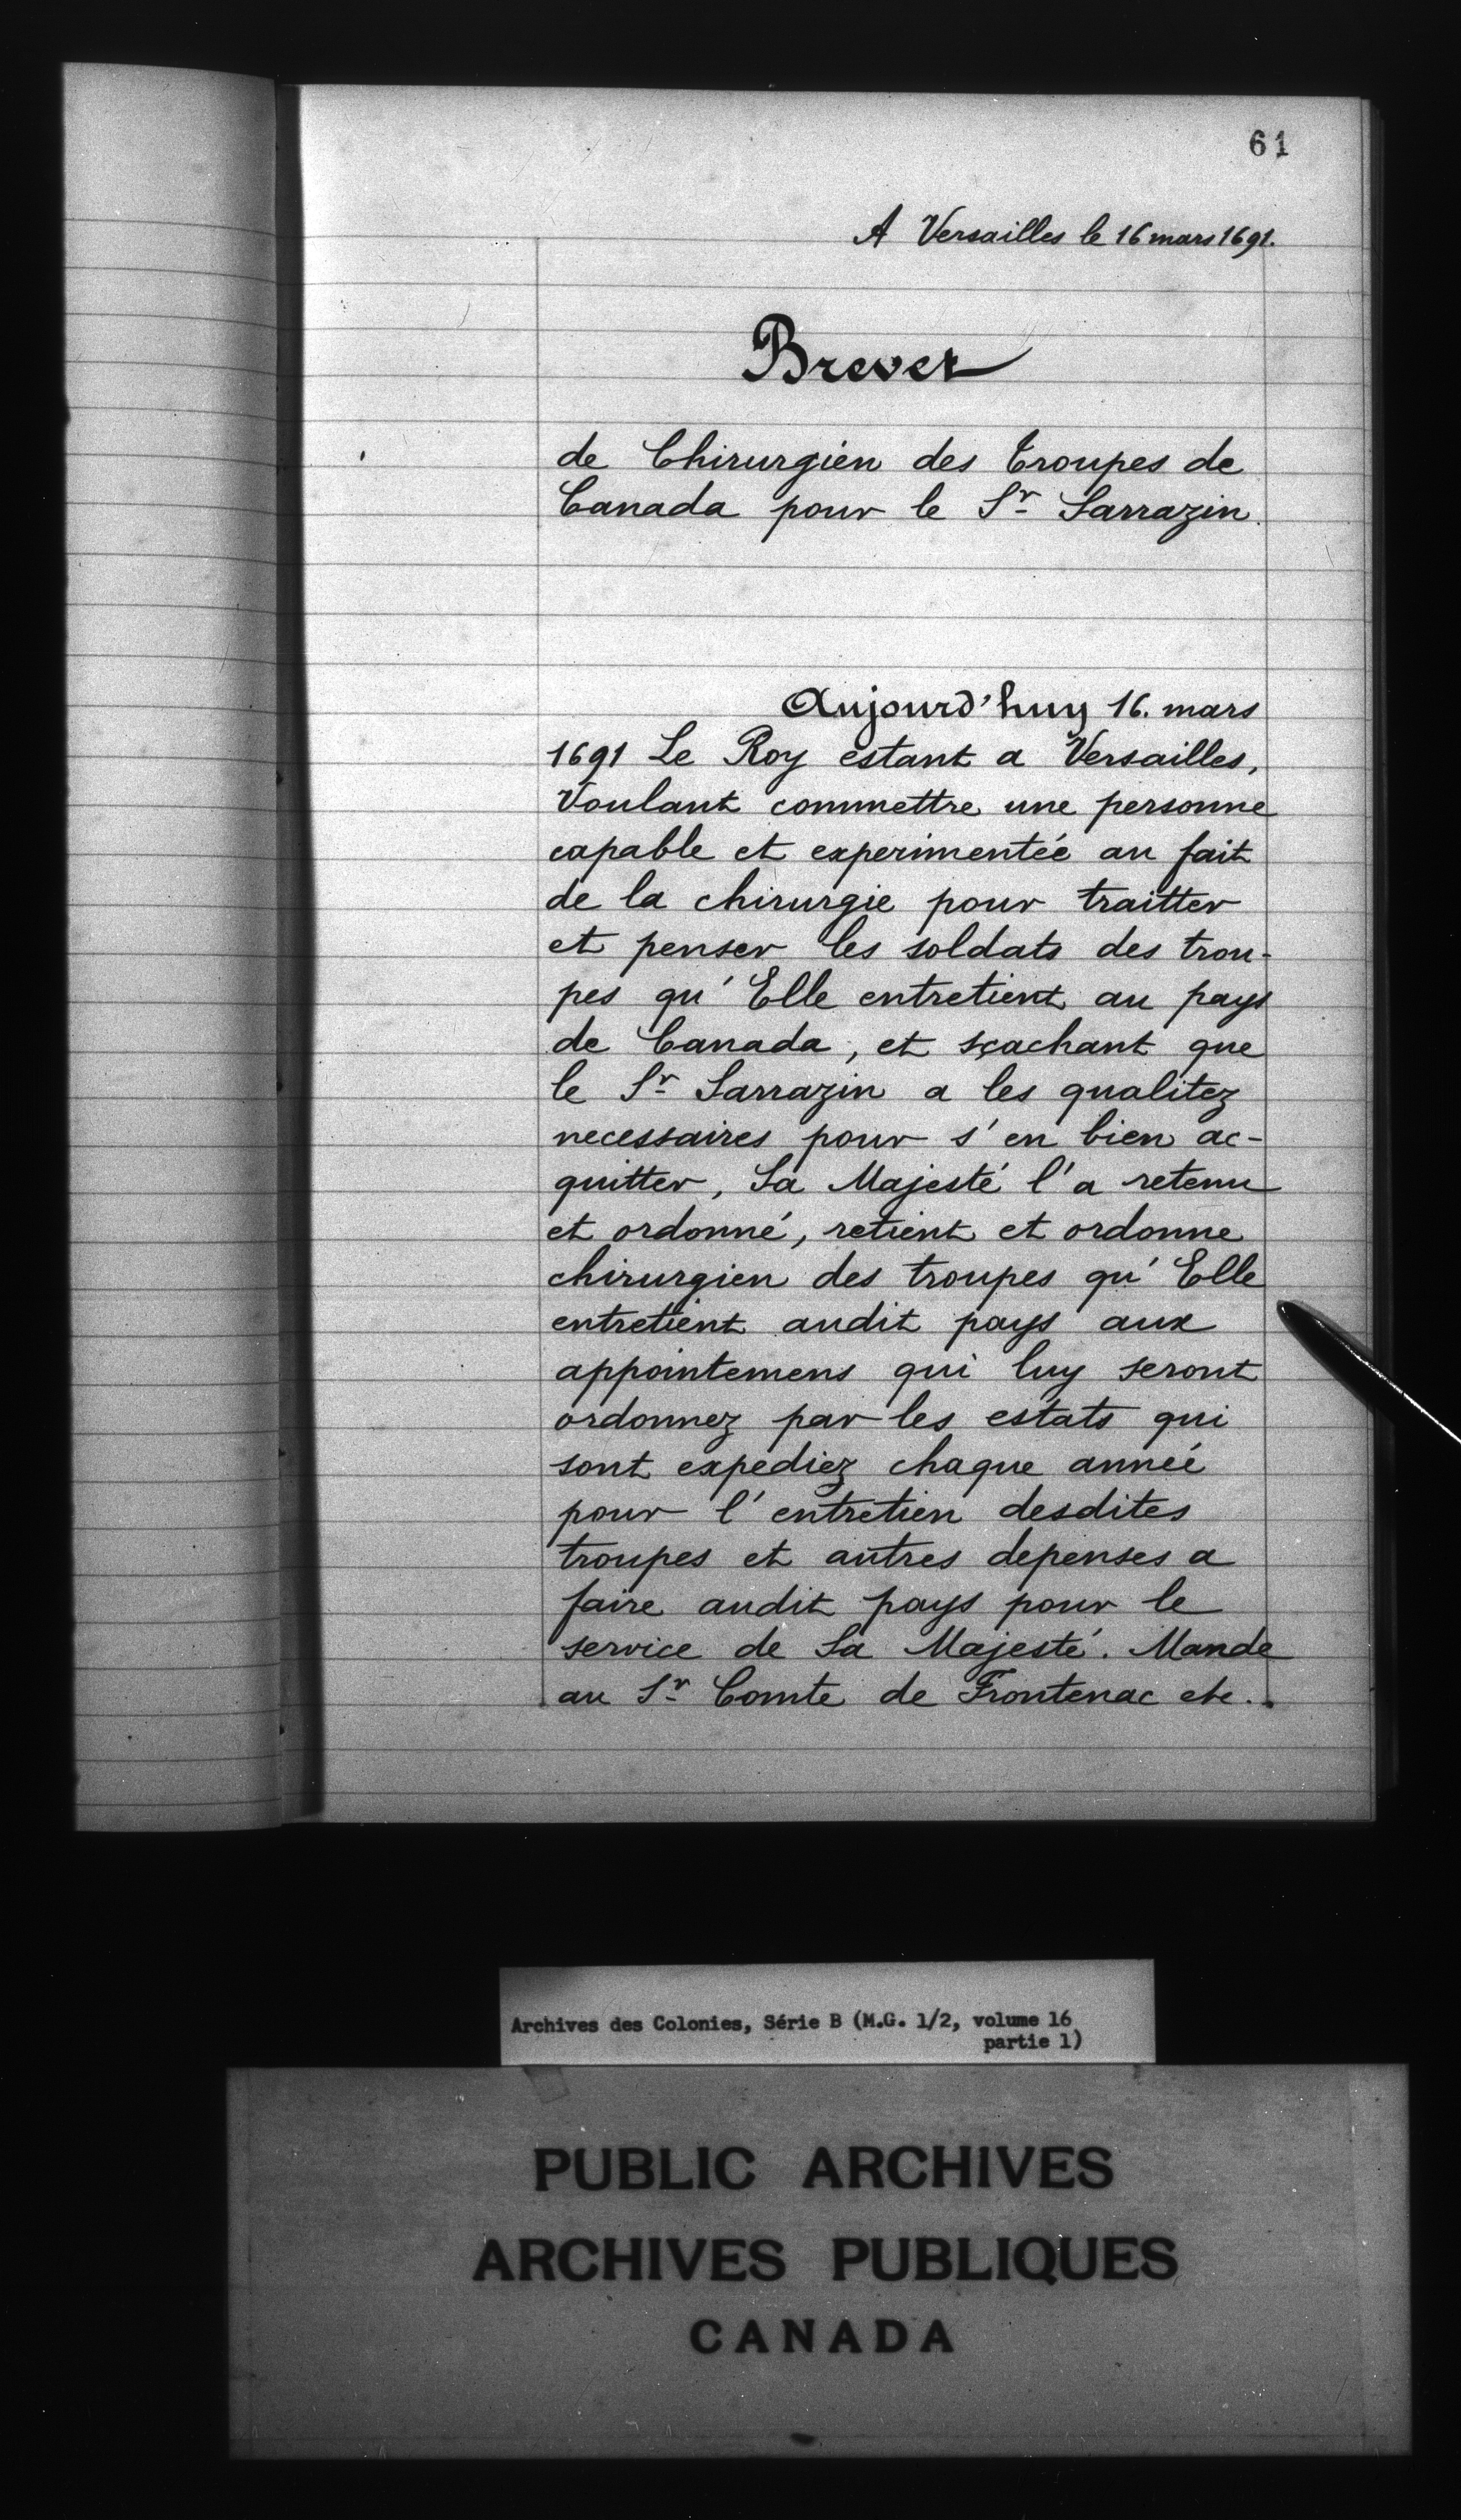 61
A Versailles le 16 mars 1691.
Brevet
de Chirurgien des troupes de
Canada pour le Sr Sarrazin.
Aujourd'huy 16. mars
1691 Le Roy estant a Versailles,
Voulant commettre une personne
capable et experimentée au fait
de la chirurgie pour traitter
et penser les soldats des trou-
pes qu'Elle entretient au pays
de Canada, et sçachant que
le Sr Sarrazin a les qualitez
necessaires pour s'en bien ac-
quitter, Sa Majesté l'a retenu
et ordonné, retient et ordonne
chirurgien des troupes qu'Elle
entretient audit pays aux
appointemens qui luy seront
ordonnez par les estats qui
sont expediez chaque année
pour l'entretien desdites
troupes et autres depenses a
faire audit pays pour le
service de Sa Majesté. Mande
au Sr Comte de Frontenac etc..
Archives des Colonies, Série B (M.G. 1/2, volume 16
partie 1)
PUBLIC ARCHIVES
ARCHIVES PUBLIQUES
CANADA